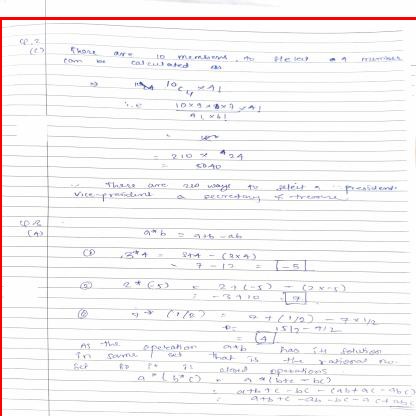 Q.2
(c) There are 10 members, to select a 4 member
can be calculated as
⇒ 10C4 × 4!
i.e 10×9×8×7 × 4!
4! × 6!
=
= 210 × 24
= 5040
∴ There are 210 ways to select a president
Vice-president a secretary & treasure
Q.3
(A) a*b = a+b-ab
① 3*4 = 3+4 - (3×4)
= 7-12 = -5
② 2*(-5) = 2+(-5) - (2×-5)
= -3+10 = 7
③ 7*(1/2) = 7+(1/2) - 7×1/2
= 15/2 - 7/2
= 4
As the operation a*b has its solution
in same set that is the rational no.
Set so it is closed operations
a*(b*c) = a*(b+c-bc)
= a+b+c-bc-(ab+ac-abc)
= a+b+c-ab-bc-ac+abc